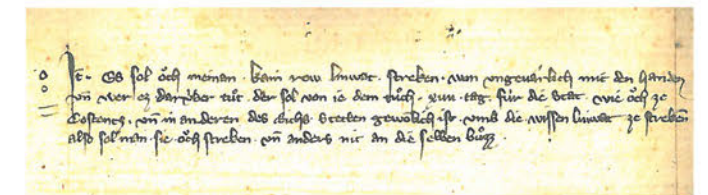 It. Es sol och nieman kain row linwat. streken. won ungevarlich mit den handen
vñ wer ez darüber tůt. der sol von ie dem tůch. xiiii. tag. für die stat. wie och ze
Costentz. vñ in anderen des Bichs Stetten gewonlich ist. vmb die wissen linwat ze streken
also sol man sie och streken. vñ anders nit an die selben bůtz.